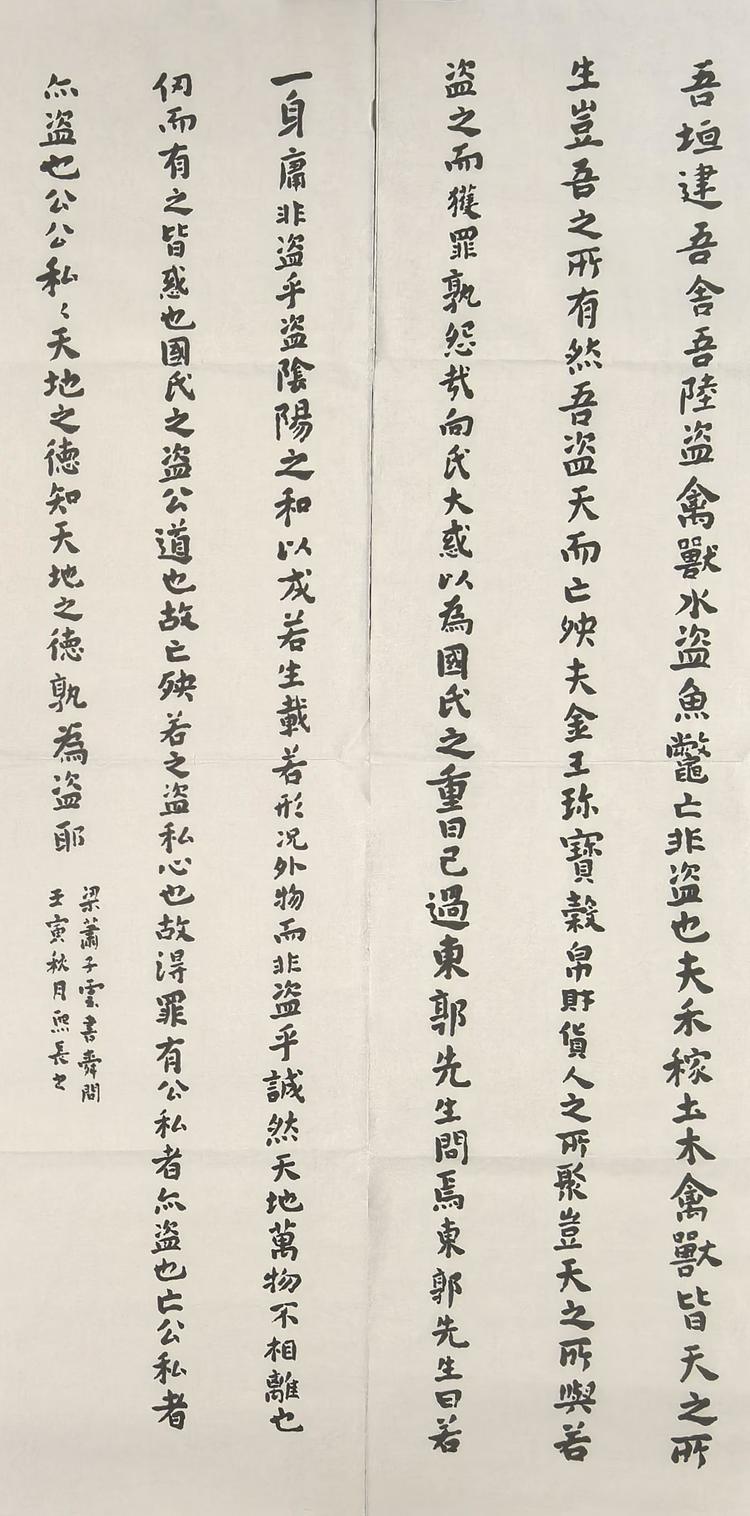 吾垣建吾舍吾陸盜禽獸水盜魚鼈亡非盜也夫禾稼土木禽獸皆天之所
生豈吾之所有然吾盜天而亡殃夫金玉珎寶穀帛財貨人之所聚豈天之所與若
盜之而獲罪孰怨哉向氏大惑以為國氏之重曰己過東郭先生問焉東郭先生曰若
一身庸非盜乎盜陰陽之和以成若生載若形況外物而非盜乎誠然天地萬物不相離也
仞而有之皆惑也國氏之盜公道也故亡殃若之盜私心也故得罪有公私者亦盜也亡公私者
亦盜也公公私〻天地之德知天地之德孰為盜耶
梁蕭子雲書舜問
壬寅秋月熙長之